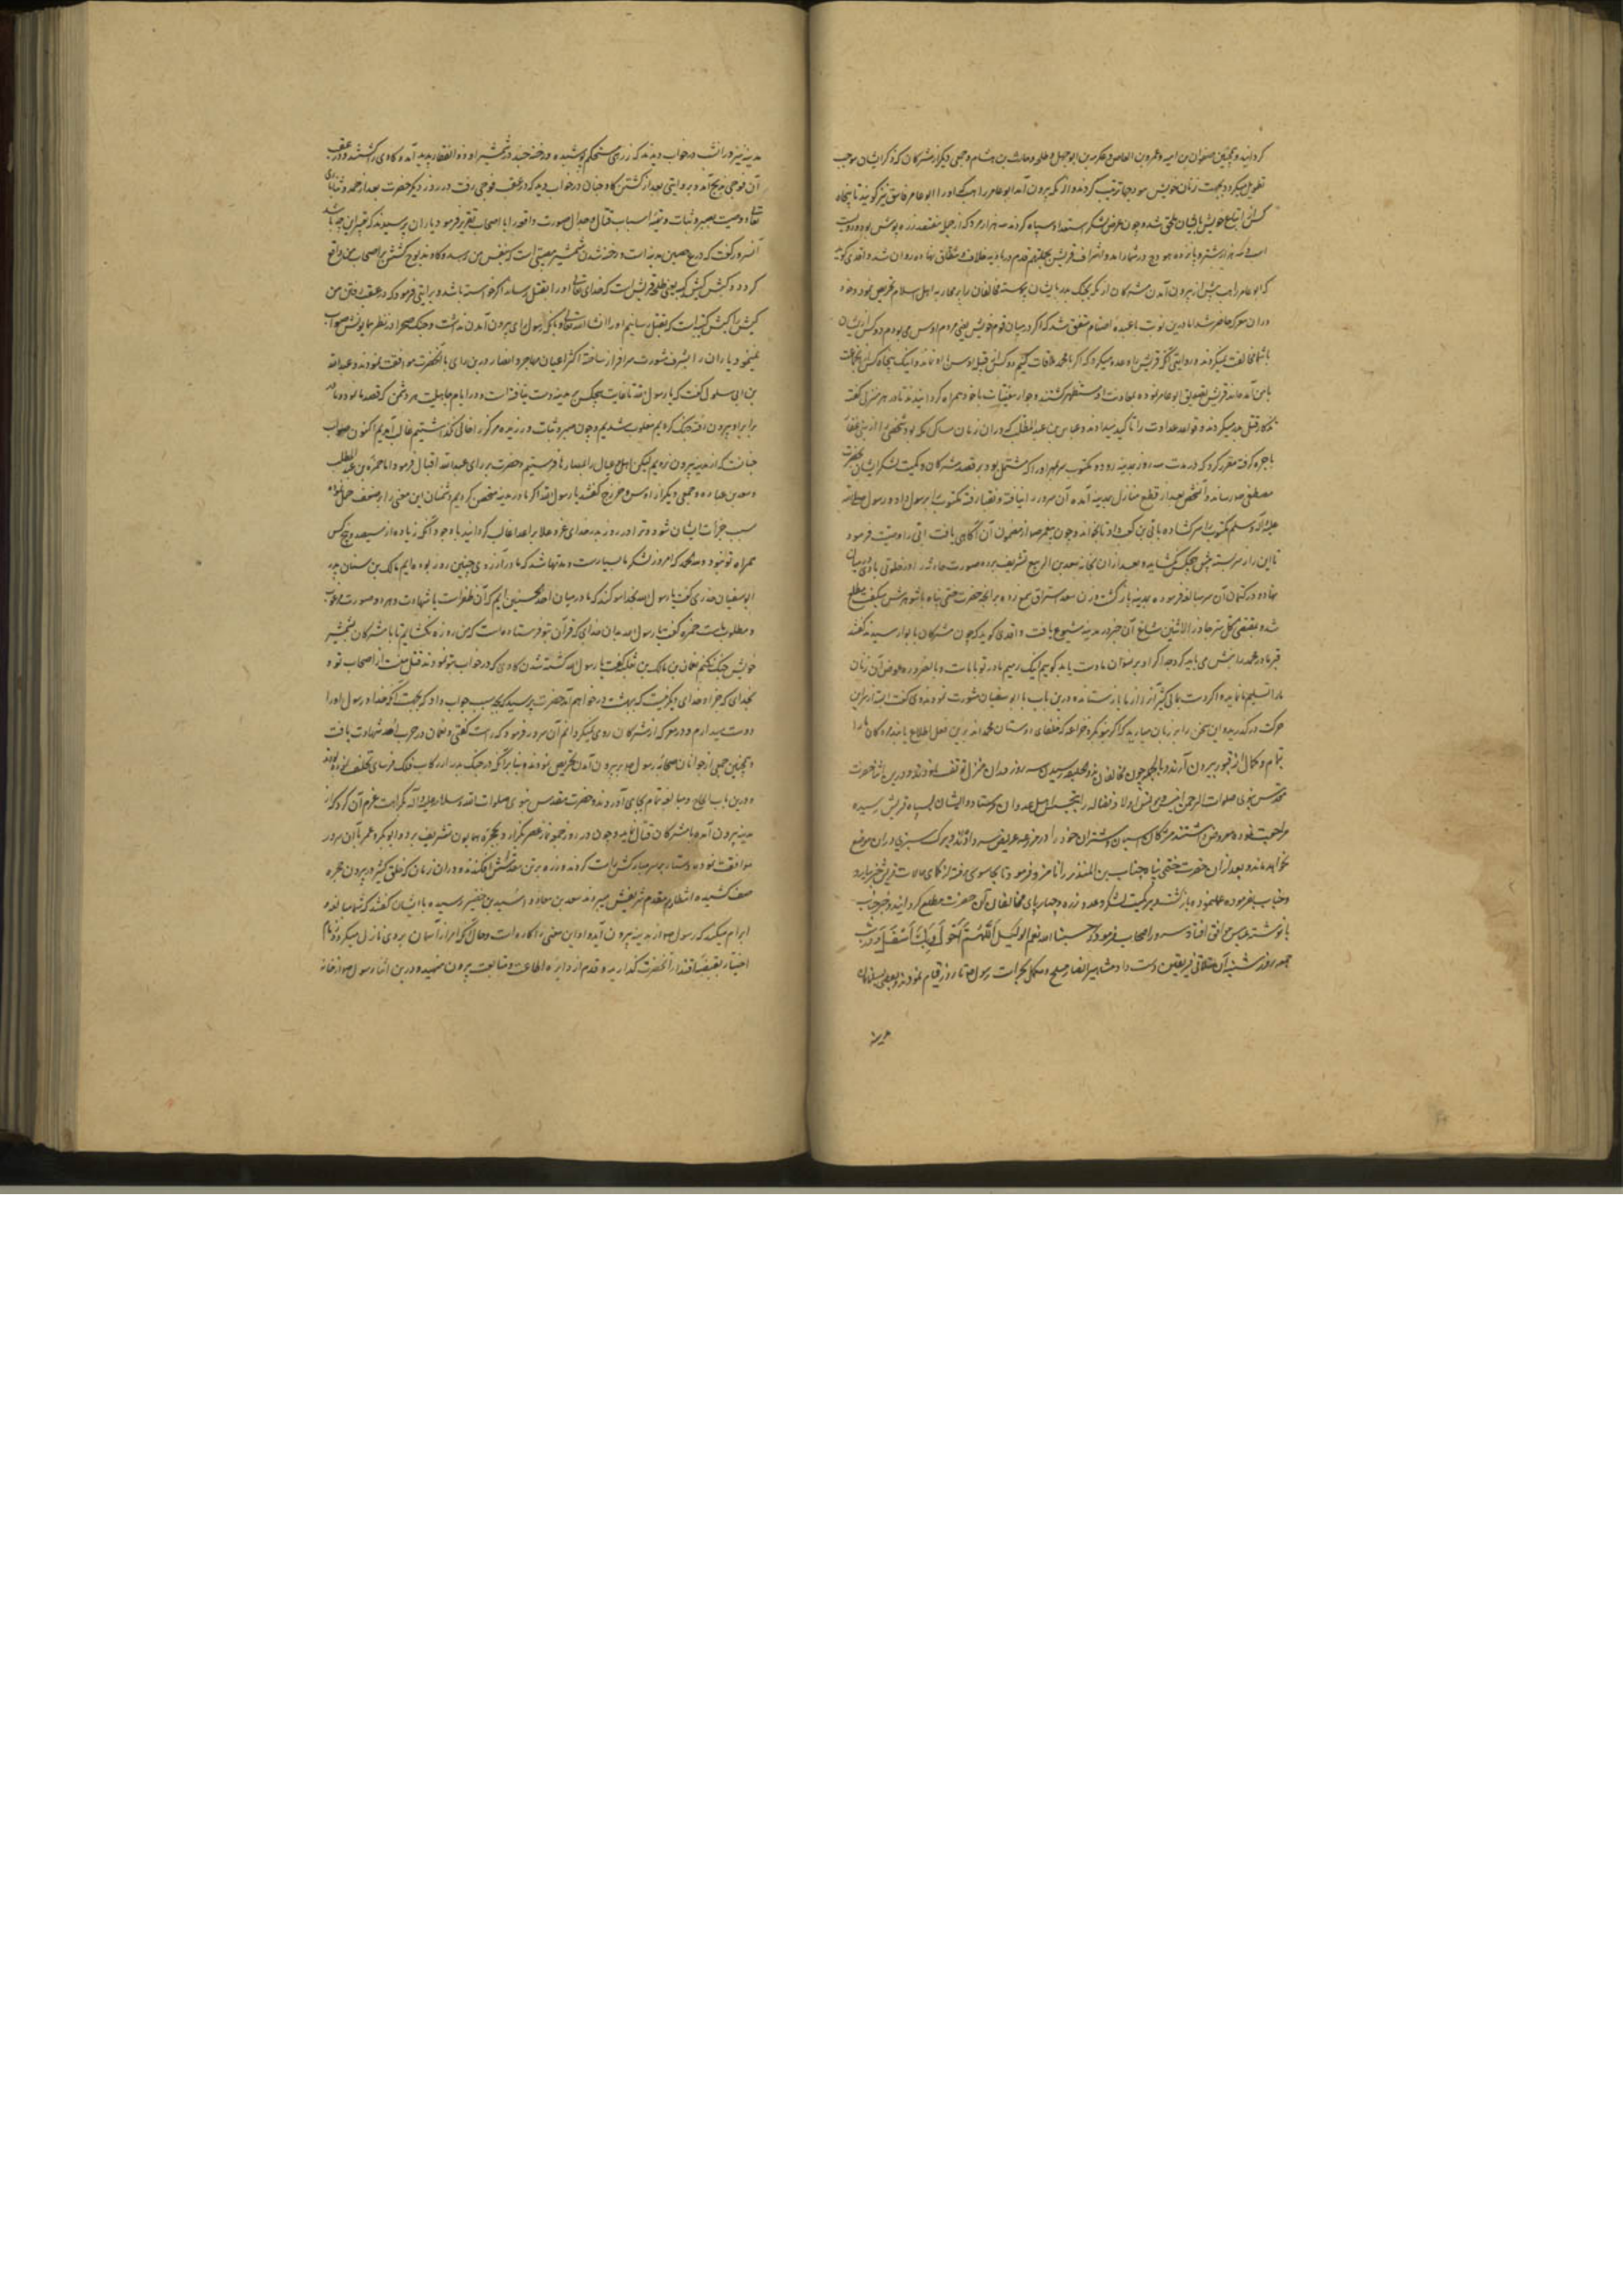 کردانید و همچنین صفوان بن امیه و عمرو بن العاص و عکرمه بن ابوجهل و طلحه و حارث بن هشام و جمعی دیگر از مشرکان که ذکر ایشان موجب
تطویل میکردد بجهت زنان خویش هودجها ترتیب کردند و از مکه بیرون آمد ابو عامر راهب که او را ابو عامر فاسق نیز کویند تا پنجاه
کس از اتباع خویش بایشان ملحق شد و چون عرض لشکر سپاه کردند سه هزار مرد که از جمله هفتصد زره پوش بود و دویست
اسب و سه هزار شتر و پانزده هودج در شمار آمد و اشراف قریش قدم در بادیه خلاف و شقاق نهاده روان شد واقدی کوید
که ابو عامر راهب پیش از بیرون آمدن مشرکان از مکه مخالفان را بر محاربه اهل اسلام تحریص نمود و خود
در ان معرکه حاضر شد اما درین نوبت با عبده اصنام متفق شد که اکر در میان قوم خویش یعنی مردم اوس می بودم دو کس از ایشان
با شما مخالفت نمیکردند و روایتی آنکه قریش را وعده میکرد که اکر با محمد ملاقات کنیم دو کس از قبیله اوس با او نماند و اینک پنجاه کس از جماعت
با من آمده اند قریش تصدیق ابو عامر نموده بمعاونت او مستظهر کشتند و جوار مغنیات با خود همراه کردانیدند تا در هر منزل کفته
قتلی بدر میکردند و قواعد عداوت را تاکید میدادند و عباس بن عبد المطلب که در ان زمان ساکن مکه بود شخصی را از بنی غفار
باجره کرفته مقرر کرد که در مدت سه روز بمدینه رود و مکتوب سر بمهر او را که مشتمل بود بر قصد مشرکان و کمیت لشکر ایشان بحضرت
مصطفی صلم رساند و آنشخص بعد از قطع منازل بمدینه آمده آن سرور را نیافته و بقبا رفته مکتوب را برسول داد و رسول صلی الله
علیه و آله و سلم مکتوب را سر کشاده بابی بن کعب داد تا بخواند و چون پیغمبر از مضمون آن آکاهی یافت ابی را وصیت فرمود
تا این راز سربسته پیش هیچکس نکشاید و بعد از ان بخانه سعد بن الربیع تشریف برده صورت حادثه را در خلوتی با وی در میان
نهاده در کتمان آن سر مبالغه فرموده بمدینه باز کشت و زن سعد استراق سمع
شده بمقتضی کل سر جاوز الاثنین شایع آن خبر در مدینه شیوع یافت و واقدی کوید که چون مشرکان بابوا رسیدند کفتند
قبر مادر محمد را نبش می باید کرد چه اکر او بر نسوان ما دست یابد کوییم اینک رمیم مادر تو با ماست و بالضرور به عوض آن زنان
ما را تسلیم نماید و اکر دست نیابد مالی کثیر آنرا از ما بازستاند و درین باب با ابو سفیان مشورت نمودند وی کفت ازین
حرکت درکذرید و این سخن را بر زبان میارید که اکر بنو بکر و خزاعه که خلفای دوستان محمدند برین فعل اطلاع یابند مرده کان ما را
بتمام و کمال از قبور بیرون آرند و بالجمله چون مخالفان بذو الحلیفه رسیدند سه روز در ان منزل توقف نمودند و درین اثنا حضرت
مقدس نبوی صلوات الرحمن علیه انس و مونس اولاد فضاله را بتجسس اهل عدوان فرستاد و ایشان بسپاه قریش رسیده
مراجعت نموده معروض داشتند که مشرکان اسبان و شتران خود را در مزرعه عریض سر داده اند و برک سبزی در ان موضع
نخواهد ماند و بعد از ان حضرت ختمی پناه حباب بن المنذر را نامزد فرمود تا بجاسوسی رفته از حالات قریش خبر بیارد
و حباب بفرموده عمل نموده باز کشت و بر کمیت لشکر و عدد زره و چهارپای مخالفان آن حضرت را مطلع کردانید و خبر حباب
با نوشته عباس موافق افتاد و سرور اصحاب فرمود که حسبنا الله نعم الوکیل اللهم بک احول و بک اصول و در شب
جمعه که روز شنبه آن تلاقی فریقین دست داد مشاهیر انصار مسلح و مکمل بحراست رسول تا روز قیام نمودند و بعضی مسلمانان
مدینه
مدینه نیز و رانشب در خواب دیدند که زرهی مستحکم پوشیده و رخنه چند در شمشیر او ذو الفقار پدید آمد و کاوی را کشتند و در عقب
آن قوچی ذبح آمد و بروایتی بعد از کشتن کاو چنان در خواب دید که در عقب قوچی رفت و در روز دیکر حضرت بعد از حمد و ثنای باری
تعالی و وصیت بصبر و ثبات و تهیه اسباب قتال و جدال صورت واقعه را با اصحاب تقریر فرمود یاران پرسیدند که تعبیر این چه باشد
آنسرور کفت که درع حصین مدینه است و رخنه شدن شمشیر مصیبتی است که بنفس من رسد و کاو مذبوح کشتن بر اصحاب من واقع
کردد و کبش کبش کتیبه یعنی طلحه قریش است که خدای تعالی او را بقتل رساند اکر خواسته باشد و بروایتی فرمود که در عقب رفتن من
کبش را کبش کتیبه است که بقتل رسانیم او را انشاء الله تعالی و بالجمله رسول رای بیرون آمدن نداشت و جنک صحرا در نظر همایونش صواب
نمینمود یاران را بشرف مشورت سرافراز ساخته اکثر اعیان مهاجر و انصار درین رای با آنحضرت موافقت نمودند و عبد الله
بن ابی سلول کفت که یا رسول الله تا غایت هیچکس بر مدینه دست نیافته است و در ایام جاهلیت هر دشمن که قصد ما نمود و ما در
برابر او بیرون رفته جنک کردیم مغلوب شدیم و چون صبر و ثبات ورزیده مرکز را خالی نکذاشتیم غالب آمدیم اکنون صواب
چنانست که از مدینه بیرون نرویم لیکن اهل و عیال را بحصارها فرستیم و حضرت بر رای عبد الله اقبال فرمود اما حمزه بن عبد المطلب
و سعد بن عباده و جمعی دیکر از اوس و خزرج کفتند یا رسول الله اکر ما در مدینه متحصن کردیم دشمنان این معنی را بر ضعف حمل نموده
سبب جرات ایشان شود و ترا در روز بدر خدای عز و علا بر اعدا غالب کردانید با وجود آنکه زیاده از سیصد و پنج کس
همراه تو نبود و بحمد الله که امروز لشکر ما بسیارست و مدتها شد که ما در آرزوی چنین روز بوده ایم مالک بن سنان پدر
ابو سفیان خدری کفت یا رسول الله بخدا سوکند که ما در میان احد الحسنیین ایم که آن ظفر است یا شهادت و هر دو صورت مرغوب
و مطلوب ماست حمزه کفت یا رسول الله بدان خدای که قرآن بتو فرستاده است که من روزه نکشایم تا با مشرکان بشمشیر
خویش جنک نکنم نعمان بن مالک بن ثعلبه کفت یا رسول الله کشته شدن کاوی که در خواب بتو نمودند قتل منست از اصحاب تو و
بخدای که جز او خدای دیکر نیست که بهشت در خواهم آمد حضرت پرسید که بچه سبب جواب داد که بجهت آنکه خدا و رسول او را
دوست میدارم و در معرکه از مشرکان روی نمیکردانم آن سرور فرمود که راست کفتی و نعمان در حرب احد شهادت یافت
و همچنین جمعی از جوانان صحابه رسول را بر بیرون آمدن تحریص نمودند بنا بر آنکه در جنک بدر از رکاب فلک فرسای تخلف نموده بودند
و درین باب الحاح و مبالغه تمام بجای آوردند و حضرت مقدس نبوی صلوات الله و سلامه علیه و آله بکراهت عزم آن کرد که از
مدینه بیرون آمده با مشرکان قتال نماید و چون در روز جمعه نماز عصر بکزارد و بحجره همایون تشریف برد و ابو بکر و عمر با آن سرور
موافقت نمودند و دستار بر سر مبارکش راست کردند و زره بر تن مقدسش افکندند و در ان زمان که خلق کثیر در بیرون حجره
صف کشیده انتظار مقدم شریفش میبردند سعد بن معاذ و اسید بن حضیر رسیده با ایشان کفتند که شما مبالغه و
ابرام میکنید که رسول از مدینه بیرون آید و او این معنی را کاره است و حال آنکه امر از آسمان بر وی نازل میکردد زمام
اختیار بقبضه اقتدار آنحضرت کذارید و قدم از دایره اطاعت و متابعت بیرون منهید و درین اثنا رسول از خانه